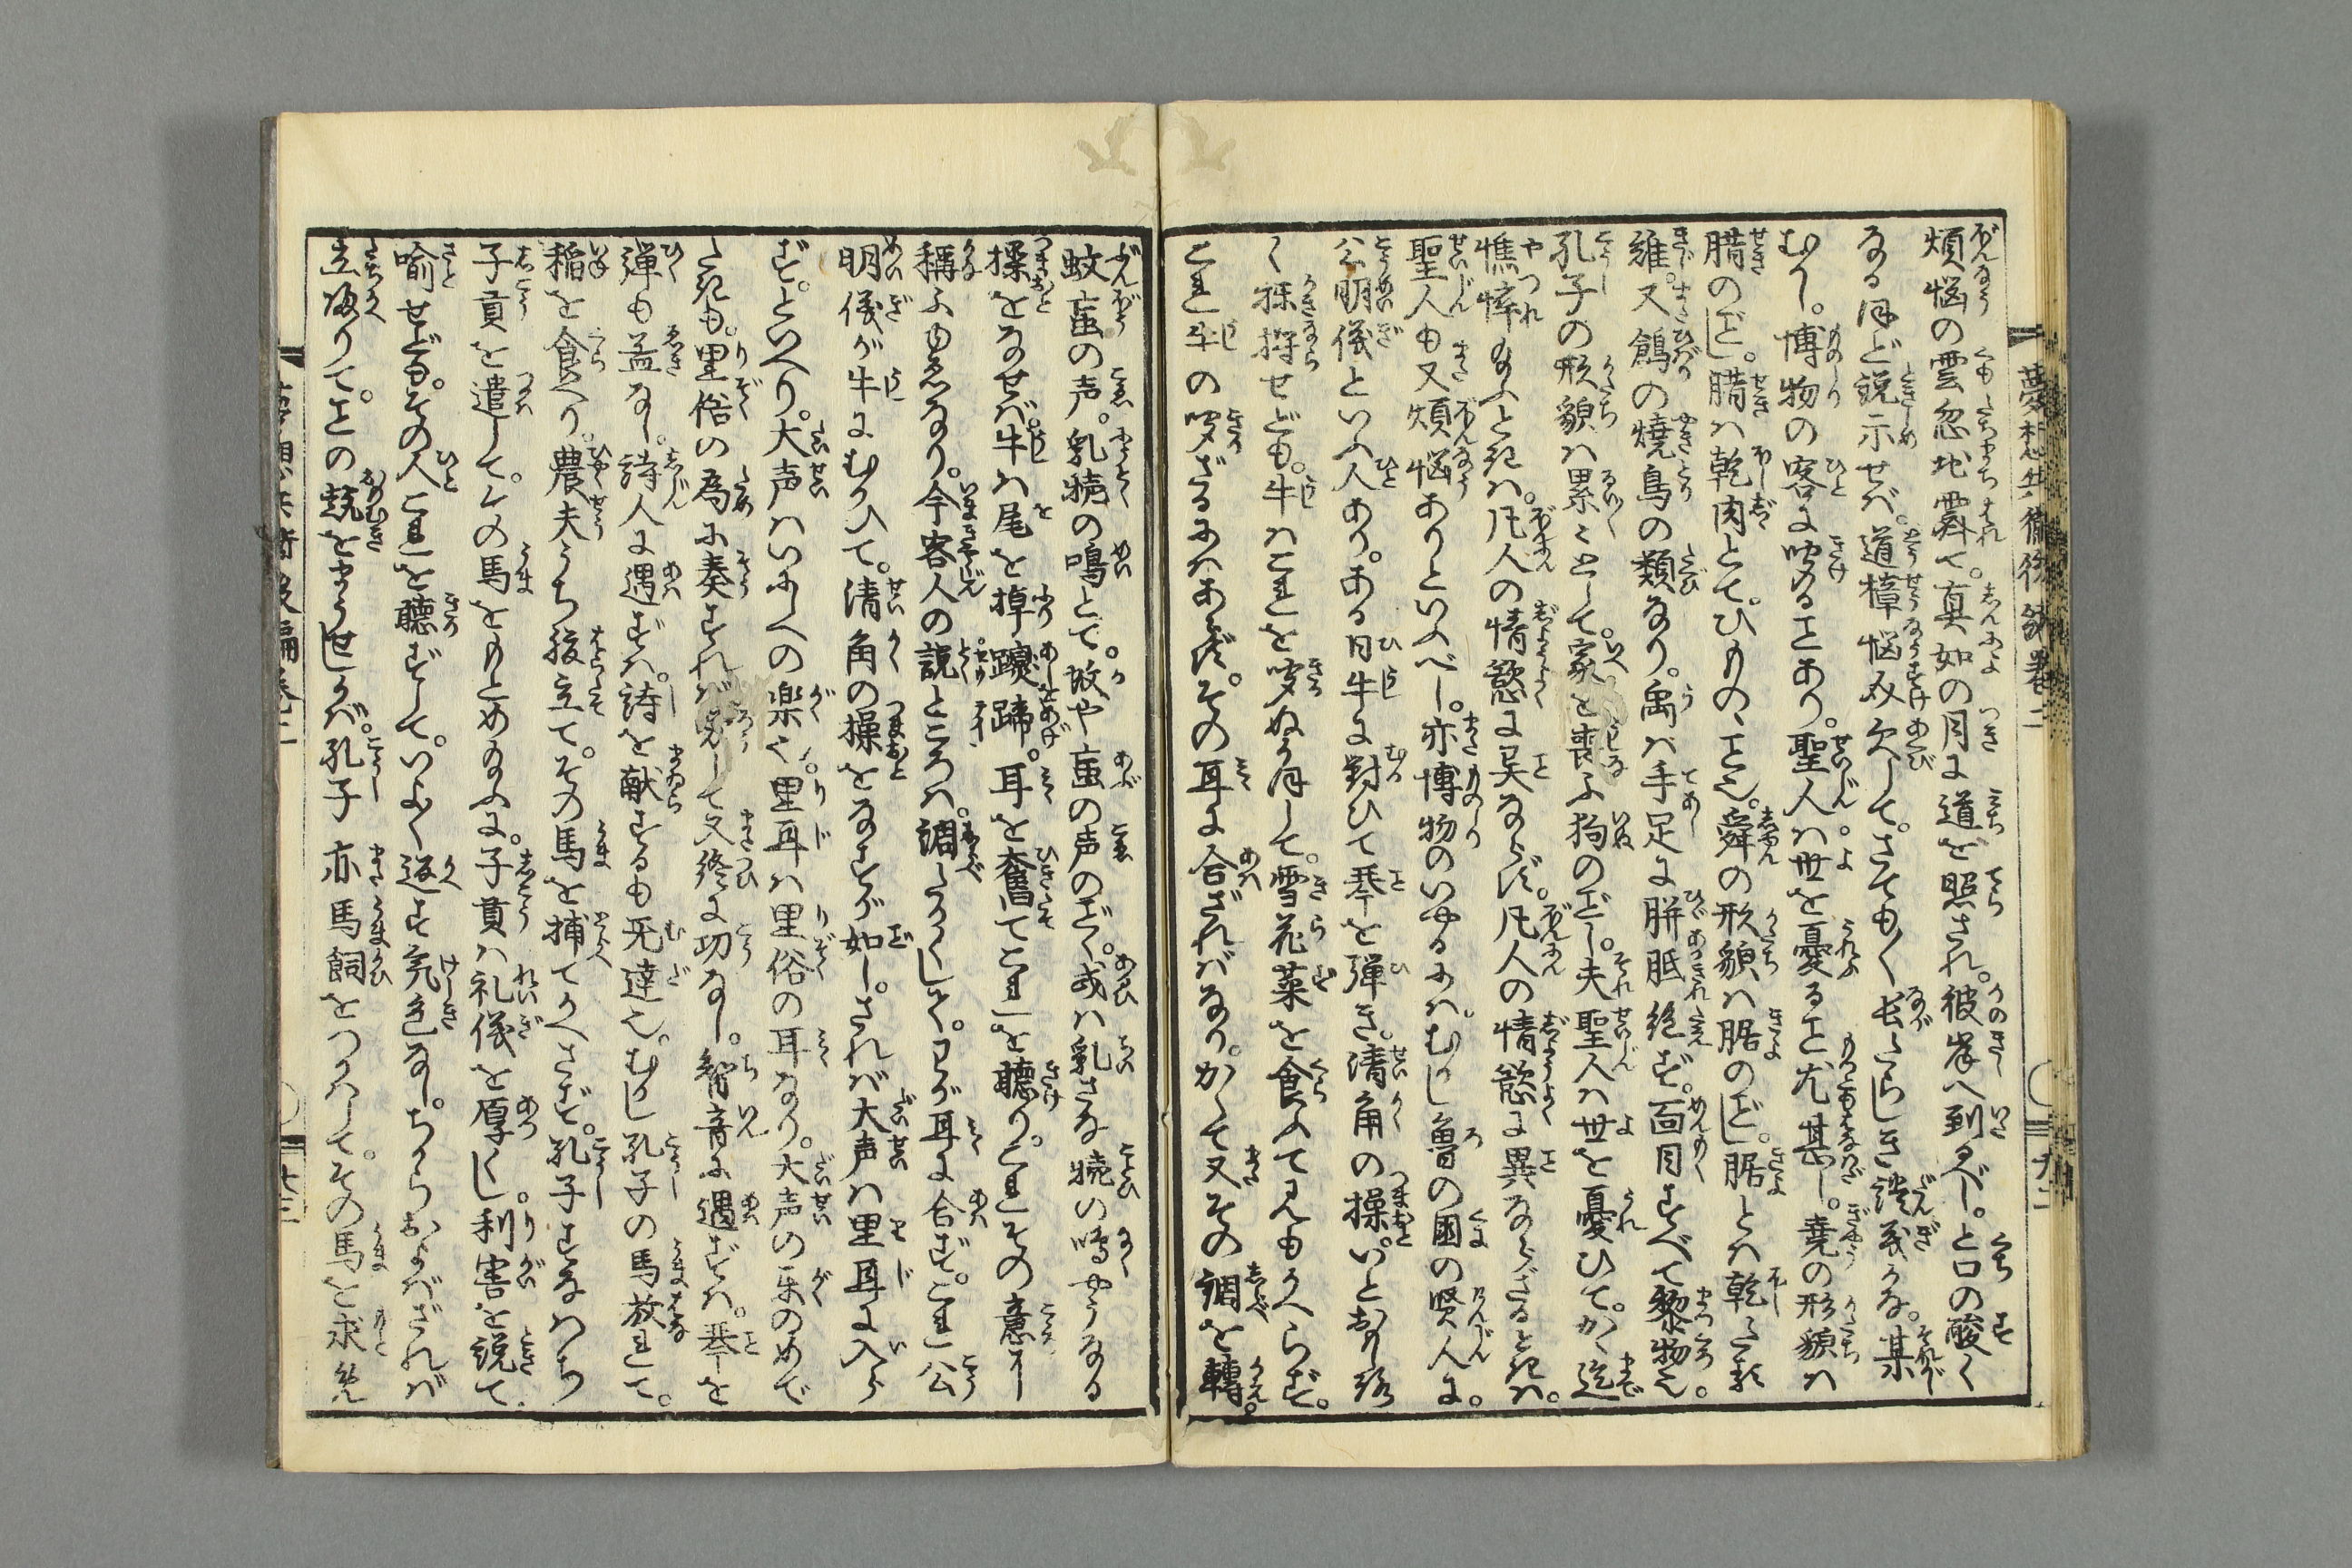 煩悩の雲忽地霽て。真如の月に道を照され。彼岸へ到るべし。と口の酸く
なる程ど説示せば。道樟悩み欠して。さても〳〵長〳〵しき談義かな。某
むかし。博物の客に咥ることあり。聖人は世を憂ること尤甚し。堯の形貌は
腊のごとし。腊は乾肉とて。ひものゝこと也。舜の形貌は腒のごとし。腒とは乾たる
雉。又鴿の焼鳥の類なり。禹は手足に胼胝絶ず。面目すべて黎物也。
孔子の形貌は累々として。家を喪ふ狗のごとし。夫聖人は世を憂ひて。かく迄
憔悴給ふときは。凡人の情慾に異ならず。凡人の情慾に異ならざるときは。
聖人も又煩悩ありといふべし。亦博物のいへるには。むかし魯の国の賢人に。
公明儀といふ人あり。ある日牛に対ひて琴を弾き。清角の操。いとおもしろ
く掻捋せども。牛はこれを咥ぬ体して。雪花菜を食ふて見もかへらず。
これ牛の咥ざるにはあらず。その耳に合ざればなり。かくて又その調を轉。
蚊虻の声。乳犢の鳴とて。蚊や虻の声のごとく。或は乳さな犢の鳴やうなる
操をなせば。牛は尾を掉躩蹄。耳を奮てこれを聴り。これその意に
稱ふゆゑなり。今客人の説ところは。調たかくして。わが耳に合ず。これ公
明儀が牛にむかひて。清角の操をなすが如し。されば大声は里耳に入ら
ず。といへり。大声はいにしへの楽也。里耳は里俗の耳なり。大声の楽のめで
たきも。里俗の為に奏すれば労して又終に功なし。知音に遇ずは。琴を
弾も益なし。詩人に遇ずは。詩を献するも无達也。むかし孔子の馬放れて。
稲を食へり。農夫うち腹立て。その馬を捕てかへさず。孔子すなはち
子貢を遣して。その馬をもとめ給ふに。子貢は礼儀を厚くし。利害を説て
喩せども。その人これを聴ずして。いよ〳〵返す気色なし。ちからおよばざれば
立帰りて。ことの趣をまうせしかば。孔子亦馬飼をつかはして。その馬を求給